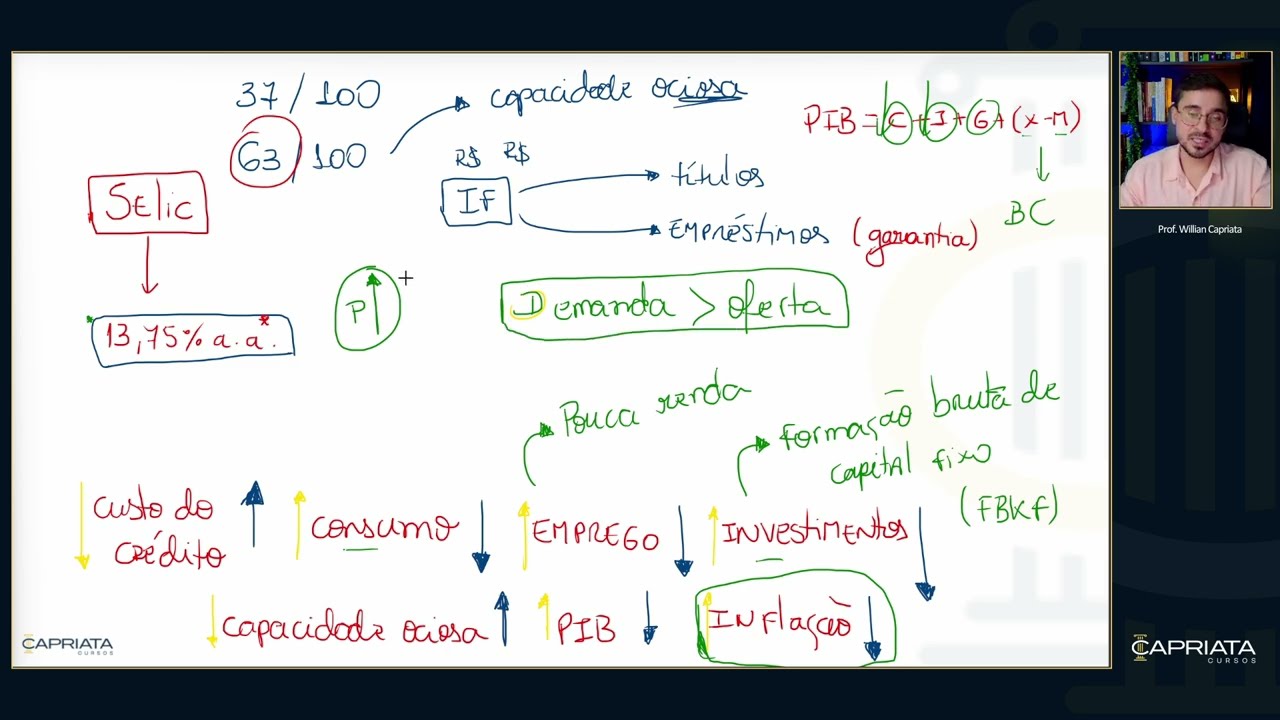 37 / 100
63 / 100
capacidade ociosa
PIB = C + I + G + (X - M)
BC
R$ R$
IF
títulos
EMPRÉStimos (garantia)
SElic
13,75% a.a.*
P
Demanda > oferta
Pouca renda
Formação bruta de
capital fixo
(FBKF)
custo do
crédito
consumo
EMPREGO
INVEStimentos
capacidade ociosa
PIB
INflação
CAPRIATA
CURSOS
Prof. Willian Capriata
CAPRIATA
CURSOS